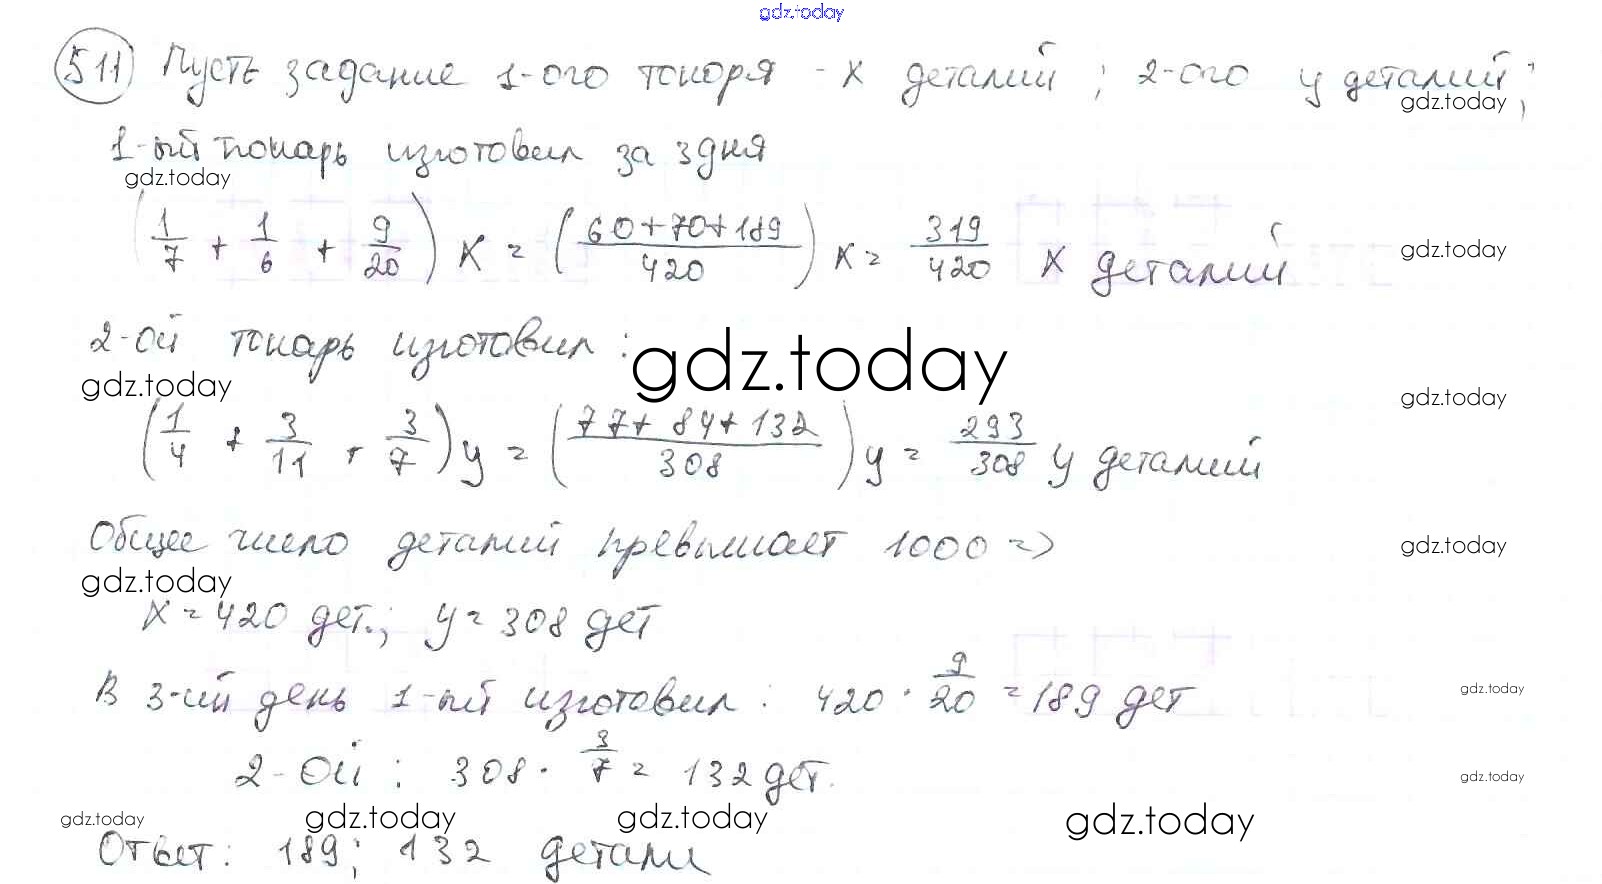 gdz.today
511 Пусть задание 1-ого токаря - x деталий ; 2-ого y деталий ;
gdz.today
1-ый токарь изготовил за 3 дня
gdz.today
(1/7 + 1/6 + 9/20) x = ((60+70+189)/420) x = 319/420 x деталий
gdz.today
2-ой токарь изготовил :
gdz.today
gdz.today
gdz.today
(1/4 + 3/11 + 3/7) y = ((77+84+132)/308) y = 293/308 y деталий
Общее число деталий превышает 1000 =>
gdz.today
gdz.today
x = 420 дет.; y = 308 дет
В 3-ий день 1-ый изготовил : 420 · 9/20 = 189 дет
gdz.today
2-ой : 308 · 3/7 = 132 дет.
gdz.today
gdz.today
gdz.today
gdz.today
gdz.today
Ответ: 189; 132 детали